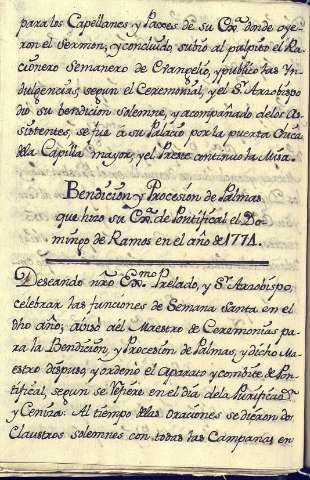 para los Capellanes y Paxes de su Ex.ª donde oye-
ron el Sermon, y concluido subio al pulpito el Ra-
cionero Semanero de Evangelio, y publico las Yn-
dulgencias, segun el Ceremonial, y el S.r Arzobispo
dio su bendicion solemne, y acompañado de los As-
sistentes, se fue à su Palacio por la puerta chica
de la Capilla mayor, y el Preste continuo la Misa.
Bendicion y Procesion de Palmas
que hizo su Ex.ª de Pontifical el Do-
mingo de Ramos en el año de 1771.
Deseando nrõ Ex.mo Prelado, y S.r Arzobispo,
celebrar las funciones de Semana Santa en el
dho año; aviso al Maestro de Ceremonias pa-
ra la Bendicion, y Procesion de Palmas, y dicho Ma-
estro dispuso y ordenò el aparato y combite de Pon-
tifical, segun se refiere en el dia de la Purificaon
y Ceniza: Al tiempo de las oraciones se dieron dos
Claustros solemnes con todas las Campanas en